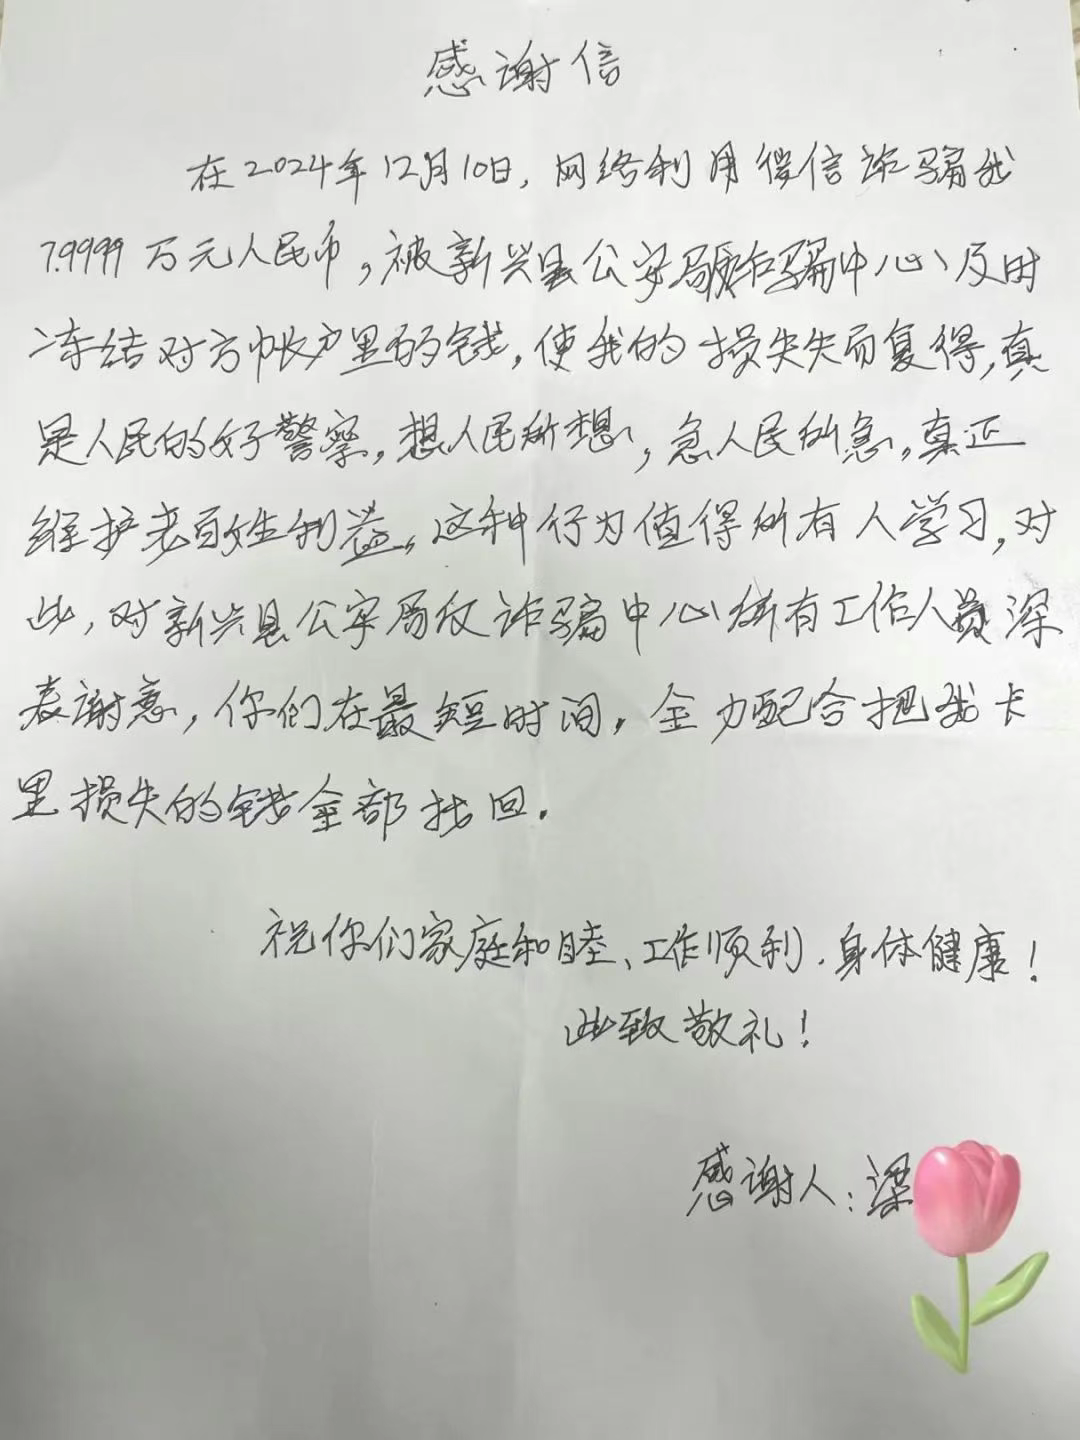 感谢信
在2024年12月10日,网络利用偿信诈骗我
7.9999万元人民币,被新兴县公安局诈骗中心及时
冻结对方帐户里的钱,使我的损失失而复得,真
是人民的好警察,想人民所想,急人民所急,真正
维护老百姓利益,这种行为值得所有人学习,对
此,对新兴县公安局反诈骗中心所有工作人员深
表谢意,你们在最短时间,全力配合把我卡
里损失的钱全部找回.
祝你们家庭和睦、工作顺利.身体健康!
此致敬礼!
感谢人:梁